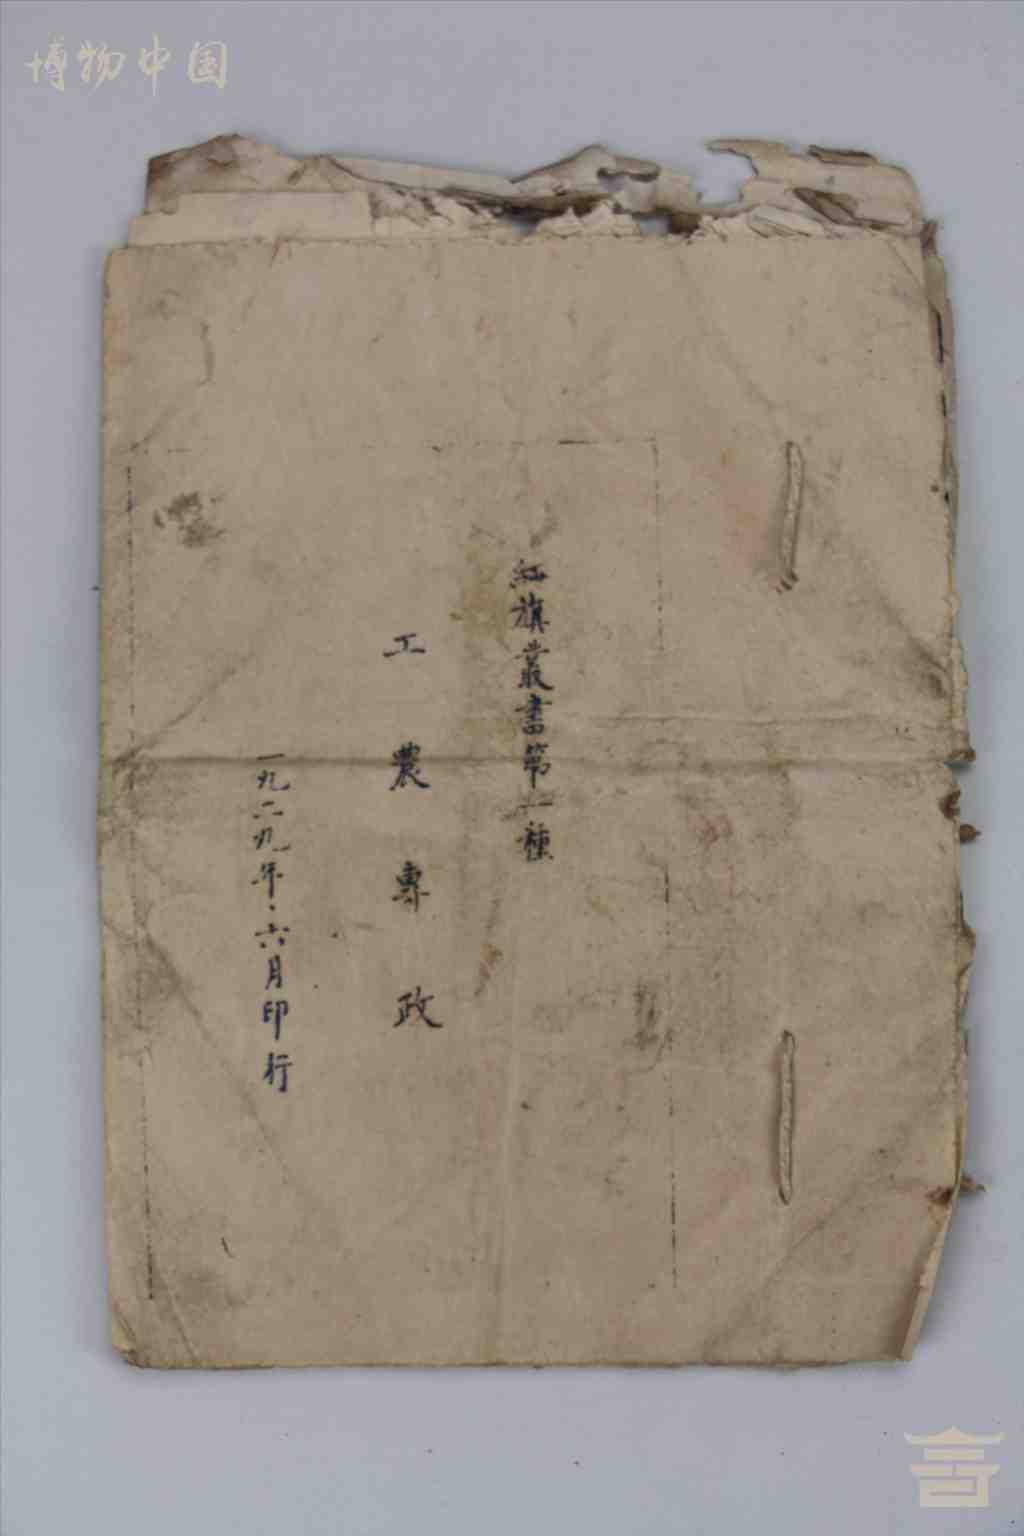 博物中国
紅旗叢書第一種
工農專政
一九二九年·六月印行